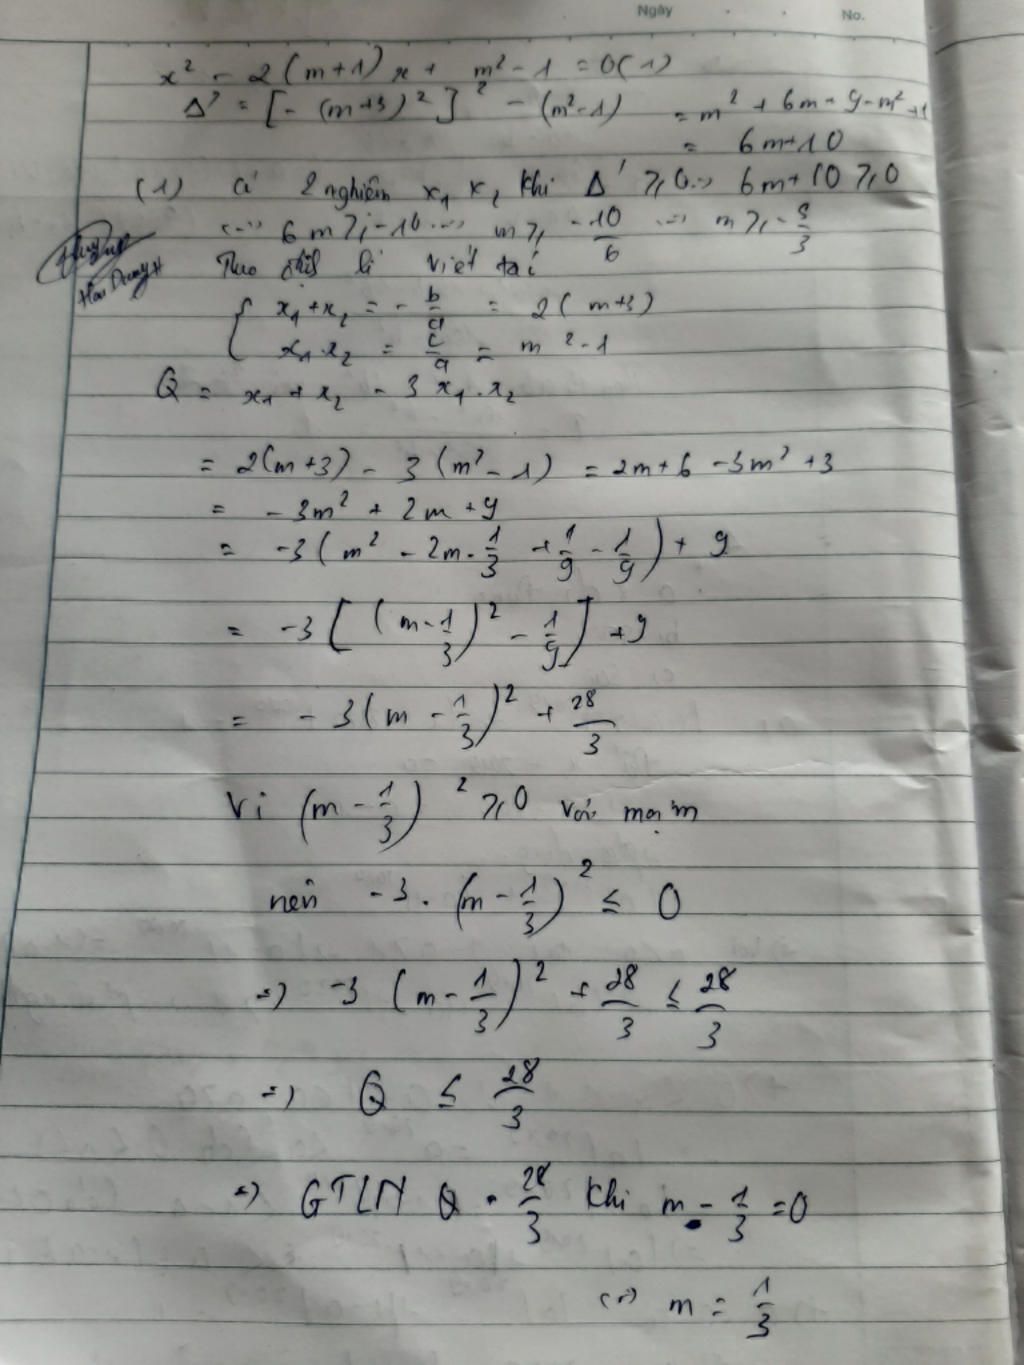 Ngày . . No.
x² - 2(m+1)x + m² - 1 = 0 (1)
Δ' = [-(m+3)²]² - (m²-1) = m² + 6m + 9 - m² + 1
= 6m+10
(1) có 2 nghiệm x₁ x₂ khi Δ' ≥ 0 <=> 6m+10 ≥ 0
<=> 6m ≥ -10 <=> m ≥ -10/6 <=> m ≥ -5/3
Theo định lí viét tai
{ x₁+x₂ = -b/a = 2(m+3)
x₁.x₂ = c/a = m²-1
Q = x₁ + x₂ - 3x₁.x₂
= 2(m+3) - 3(m²-1) = 2m+6 -3m² +3
= -3m² + 2m + 9
= -3(m² - 2m.1/3 + 1/9 - 1/9) + 9
= -3[(m-1/3)² - 1/9] + 9
= -3(m - 1/3)² + 28/3
Vì (m - 1/3)² ≥ 0 với mọi m
nên -3.(m - 1/3)² ≤ 0
=> -3(m - 1/3)² + 28/3 ≤ 28/3
=> Q ≤ 28/3
=> GTLN Q = 28/3 khi m - 1/3 = 0
<=> m = 1/3